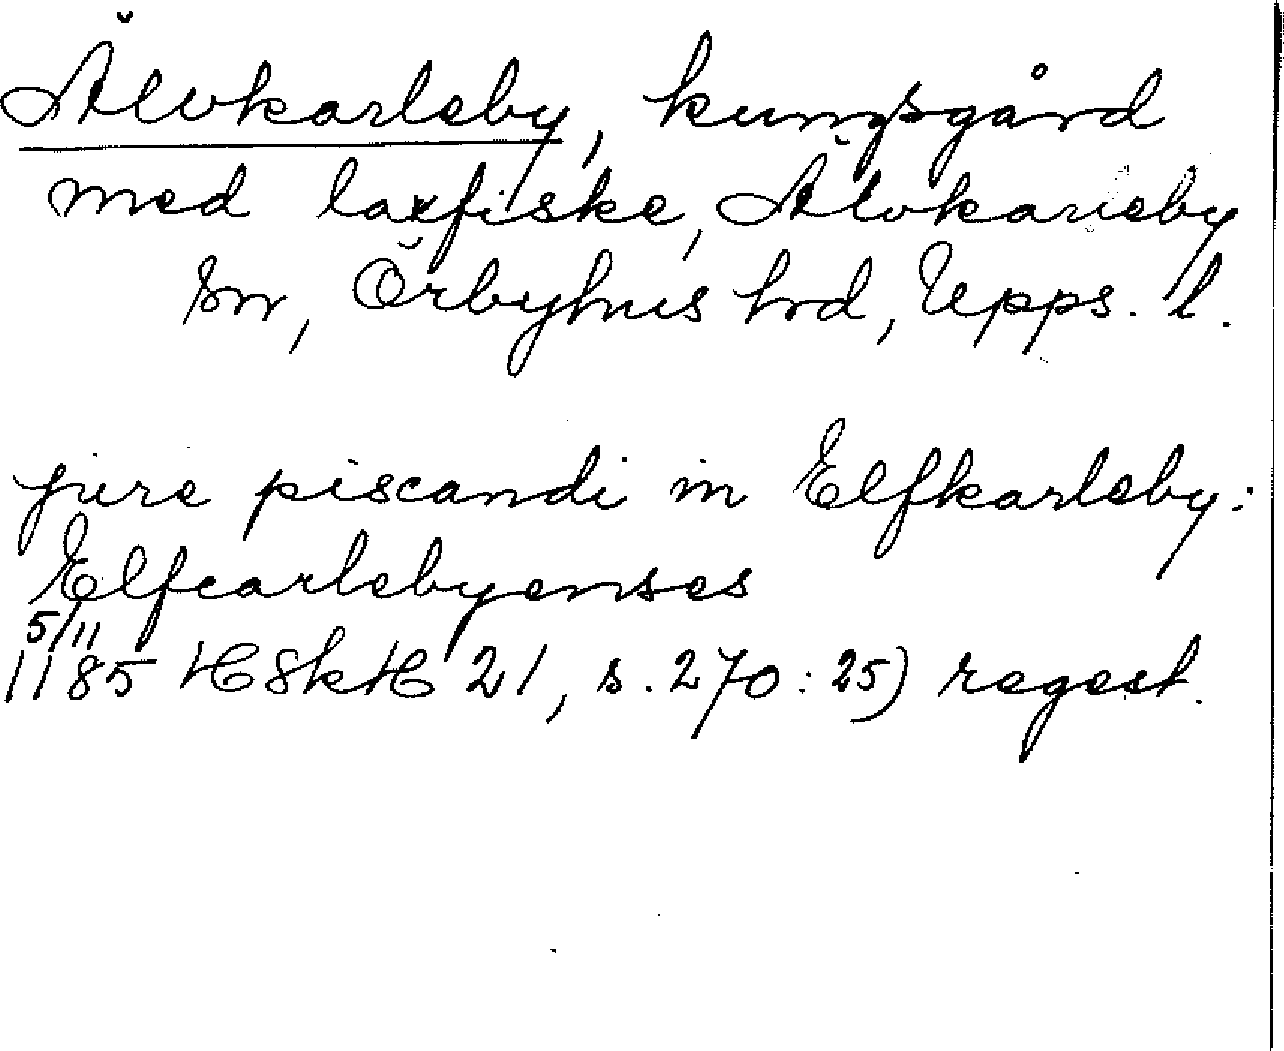 Älvkarleby, kungsgård
med laxfiske, Älvkarleby
sn, Örbyhus hrd, Upps. l.
jure piscandi in Elfkarleby:
Elfcarlebyenses
5/11
1185 HSkH 21, s. 270: 25) regest.